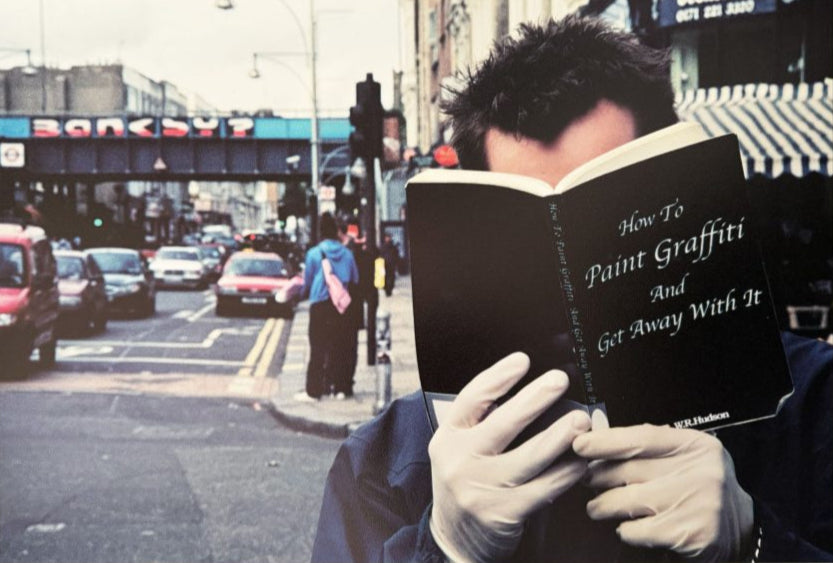 0171 221 3320
BANKSY?
How To
Paint Graffiti
And
Get Away With It
How To Paint Graffiti And Get Away With It
W.R.Hudson